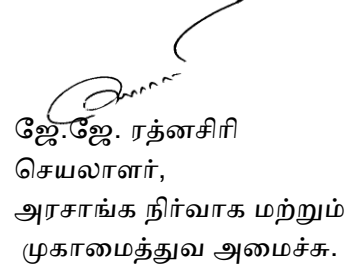 ஜே.ஜே. ரத்னசிரி
செயலாளர்,
அரசாங்க நிர்வாக மற்றும்
முகாமைத்துவ அமைச்சு.